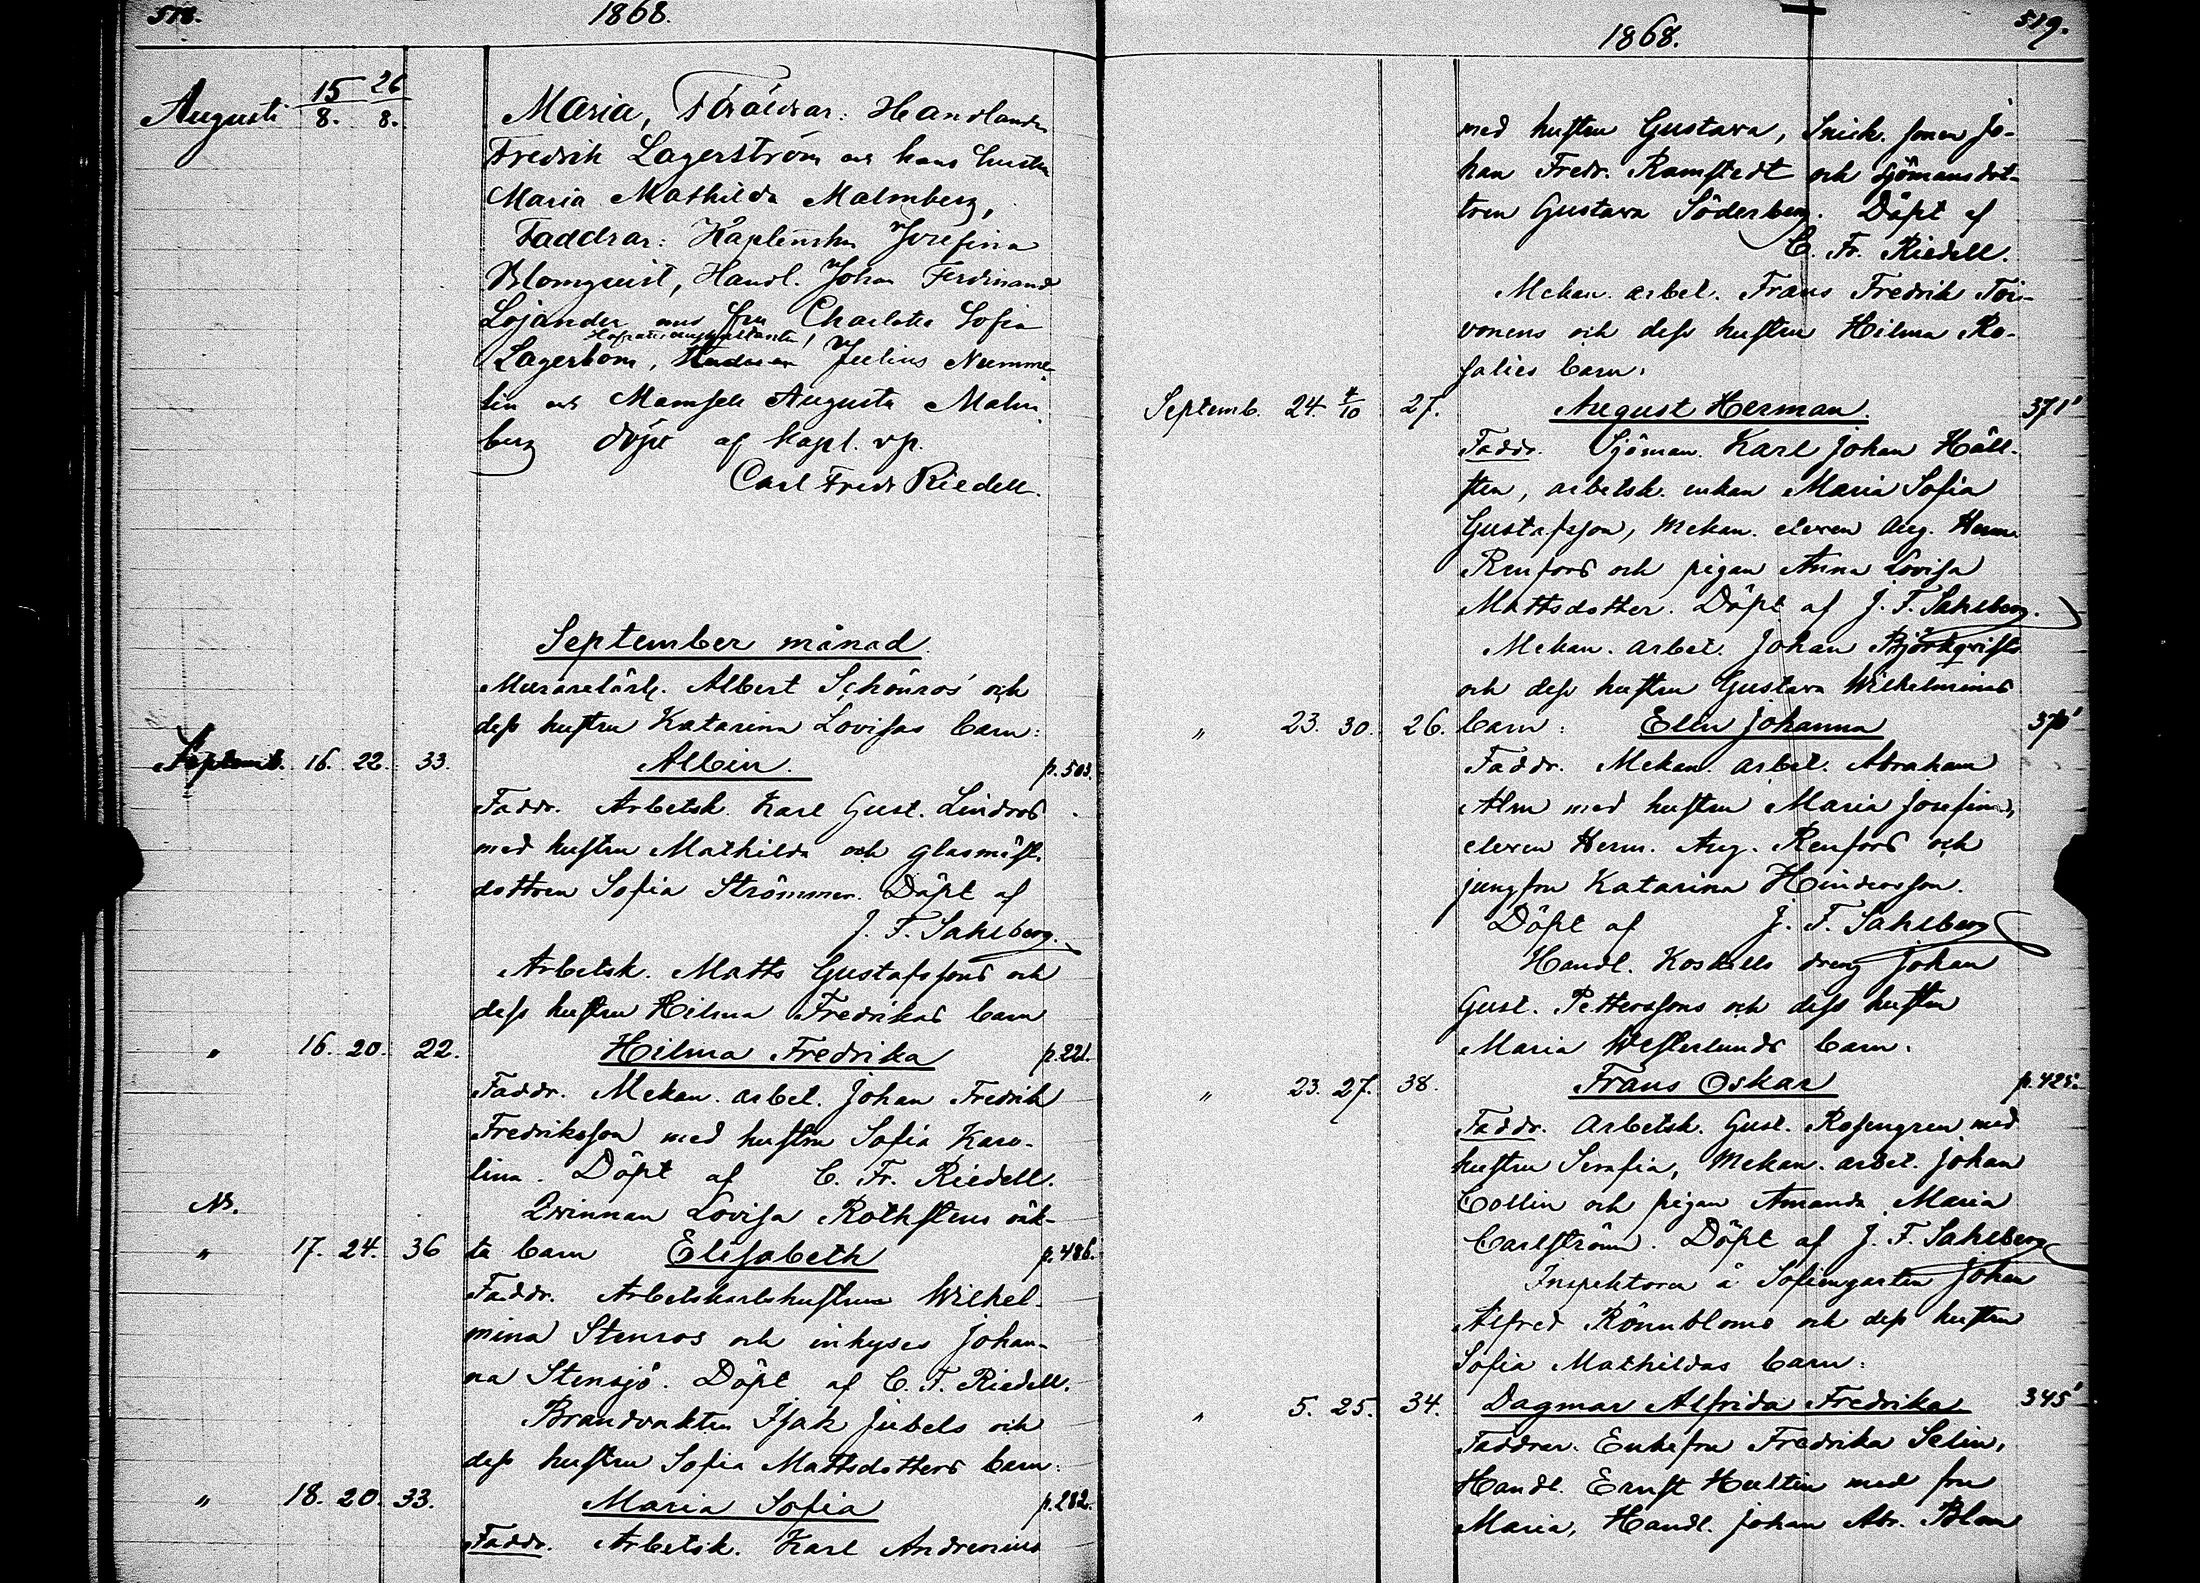 518.
1868.
Augusti 15/8. 26/8. Maria, Föräldrar: Handlanden
Fredrik Lagerström och hans hustru
Maria Mathilda Malmberg,
Faddrar: Josefina
Blomqvist, Handl. Johan Ferdinand
Lojander med fru Charlotta Sofia
Lagerbom, Julius Numme-
lin och Mamsell Augusta Malm
berg döpt af Kapl. vp.
Carl Fredr Riedell.
September månad.
Murarelärl. Albert Schönros och
dess hustru Katarina Lovisas barn:
Septemb. 16. 22. 33. Albin. p. 503.
Faddr. Arbetsk. Karl Gust. Lindros
med hustru Mathilda och glasmäst.
dottren Sofia Strömmer. Döpt af
J. F. Sahlberg.
Arbetsk. Matts Gustafssons och
dess hustru Hilma Fredrikas barn
" 16. 20. 22. Hilma Fredrika p. 221.
Faddr. Mekan. arbet. Johan Fredrik
Fredriksson med hustru Sofia Karo-
lina. Döpt af C. Fr. Riedell.
Qvinnan Lovisa Rothstens oäk-
" 17. 24. 36 ta barn Elisabeth p. 486.
Faddr. Arbetskarlshustrun Wilhel-
mina Stenros och inhyses Johan-
na Stensjö. Döpt af C. F. Riedell.
Brandvakten Isak Jubels och
dess hustru Sofia Mattsdotters barn:
" 18. 20. 33. Maria Sofia p. 282.
Faddr. Arbetsk. Karl
519.
1868.
med hustru Gustava, Snick. sonen Jo-
han Fredr. Ramstedt och sjömansdot-
tren Gustava Söderberg. Döpt af
C. Fr. Riedell.
Mekan. arbet. Frans Fredrik Toi-
vonens och dess hustru Hilma Ro-
salies barn:
Septemb. 24. 4/10 27. August Herman. 371
Faddr. Sjöman. Karl Johan Häll-
sten, arbetsk. enkan Maria Sofia
Gustafsson, mekan. eleven Aug. Herm.
Renfors och pigan Anna Lovisa
Mattsdotter. Döpt af J. F. Sahlberg.
Mekan. arbet. Johan Björkqvists
och dess hustru Gustava Wilhelminas
" 23. 30. 26. barn: Elin Johanna 370
Faddr. Mekan. arbet. Abraham
Alm med hustru Maria Josefina,
eleven Herm. Aug. Renfors och
jungfru Katarina Hindersson.
Döpt af J. F. Sahlberg
Handl. Koskells dreng Johan
Gust. Petterssons och dess hustru
Maria Westerlunds barn:
" 23. 27. 38. Frans Oskar p. 425.
Faddr. Arbetsk. Gust. Rosengren med
hustru Serafia, Mekan. arbet. Johan
Collin och pigan Amanda Maria
Carlström. Döpt af J. F. Sahlberg
Inspektoren å Sofiengarten Johan
Alfred Rönnbloms och dess hustru
Sofia Mathildas barn:
" 5. 25. 34. Dagmar Alfrida Fredrika 345
Faddrar. Enkefru Fredrika Selin,
Handl. Ernst Hultin med fru
Maria, Handl. Johan Abr. Blom